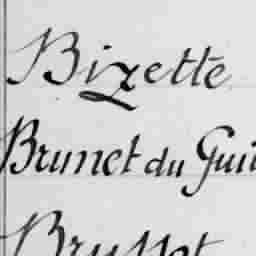 Bizette
Brunet du Gui
Brussot